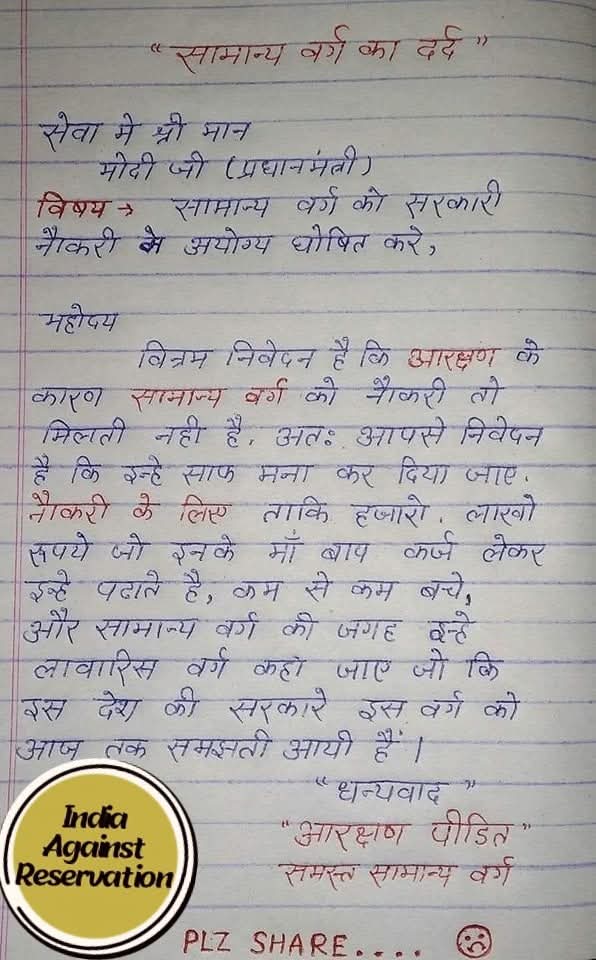 “सामान्य वर्ग का दर्द”
सेवा मे श्री मान
मोदी जी (प्रधानमंत्री)
विषय → सामान्य वर्ग को सरकारी
नौकरी मे अयोग्य घोषित करे,
महोदय
विनम्र निवेदन है कि आरक्षण के
कारण सामान्य वर्ग को नौकरी तो
मिलती नही है. अतः आपसे निवेदन
है कि इन्हे साफ मना कर दिया जाए.
नौकरी के लिए ताकि हजारो. लाखो
रूपये जो इनके माँ बाप कर्ज लेकर
इन्हे पढाते है, कम से कम बचे,
और सामान्य वर्ग की जगह इन्हे
लावारिस वर्ग कहा जाए जो कि
इस देश की सरकारे इस वर्ग को
आज तक समझती आयी हैं।
“धन्यवाद”
“आरक्षण पीडित”
समस्त सामान्य वर्ग
PLZ SHARE....
India
Against
Reservation